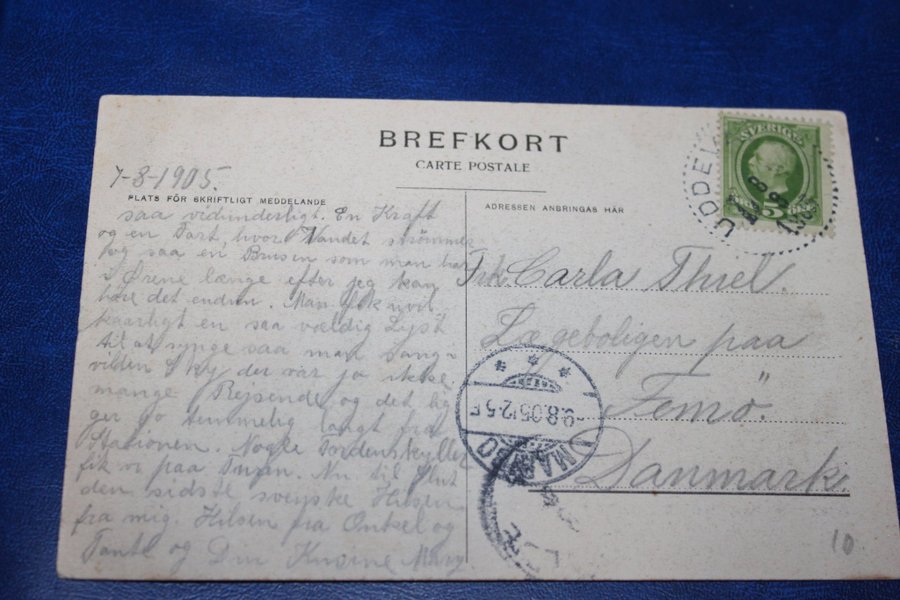 BREFKORT
CARTE POSTALE
7-8-1905.
PLATS FÖR SKRIFTLIGT MEDDELANDE
saa vidunderligt. En Kraft
og en Fart, hvor Vandet strömmer
Jeg saa en Brusen som man har
i Ørene længe efter jeg kan
höre det endnu. Man fik uvil
kaarligt en saa vældig Lyst
til at synge saa man sang
vilden Sky der var jo ikke
mange Rejsende og det lig
ger jo temmelig langt fra
Stationen. Nogle Tordenskyller
fik vi paa Turen. Nu til Slut
den sidste svenske Hilsen
fra mig. Hilsen fra Onkel og
Tante og Din Kusine Mary
ADRESSEN ANBRINGAS HÄR
Frk. Carla Thiel.
Lægeboligen paa
Femö.
Danmark.
SVERIGE
5
UDDE
9.8.05 12-5 E
10